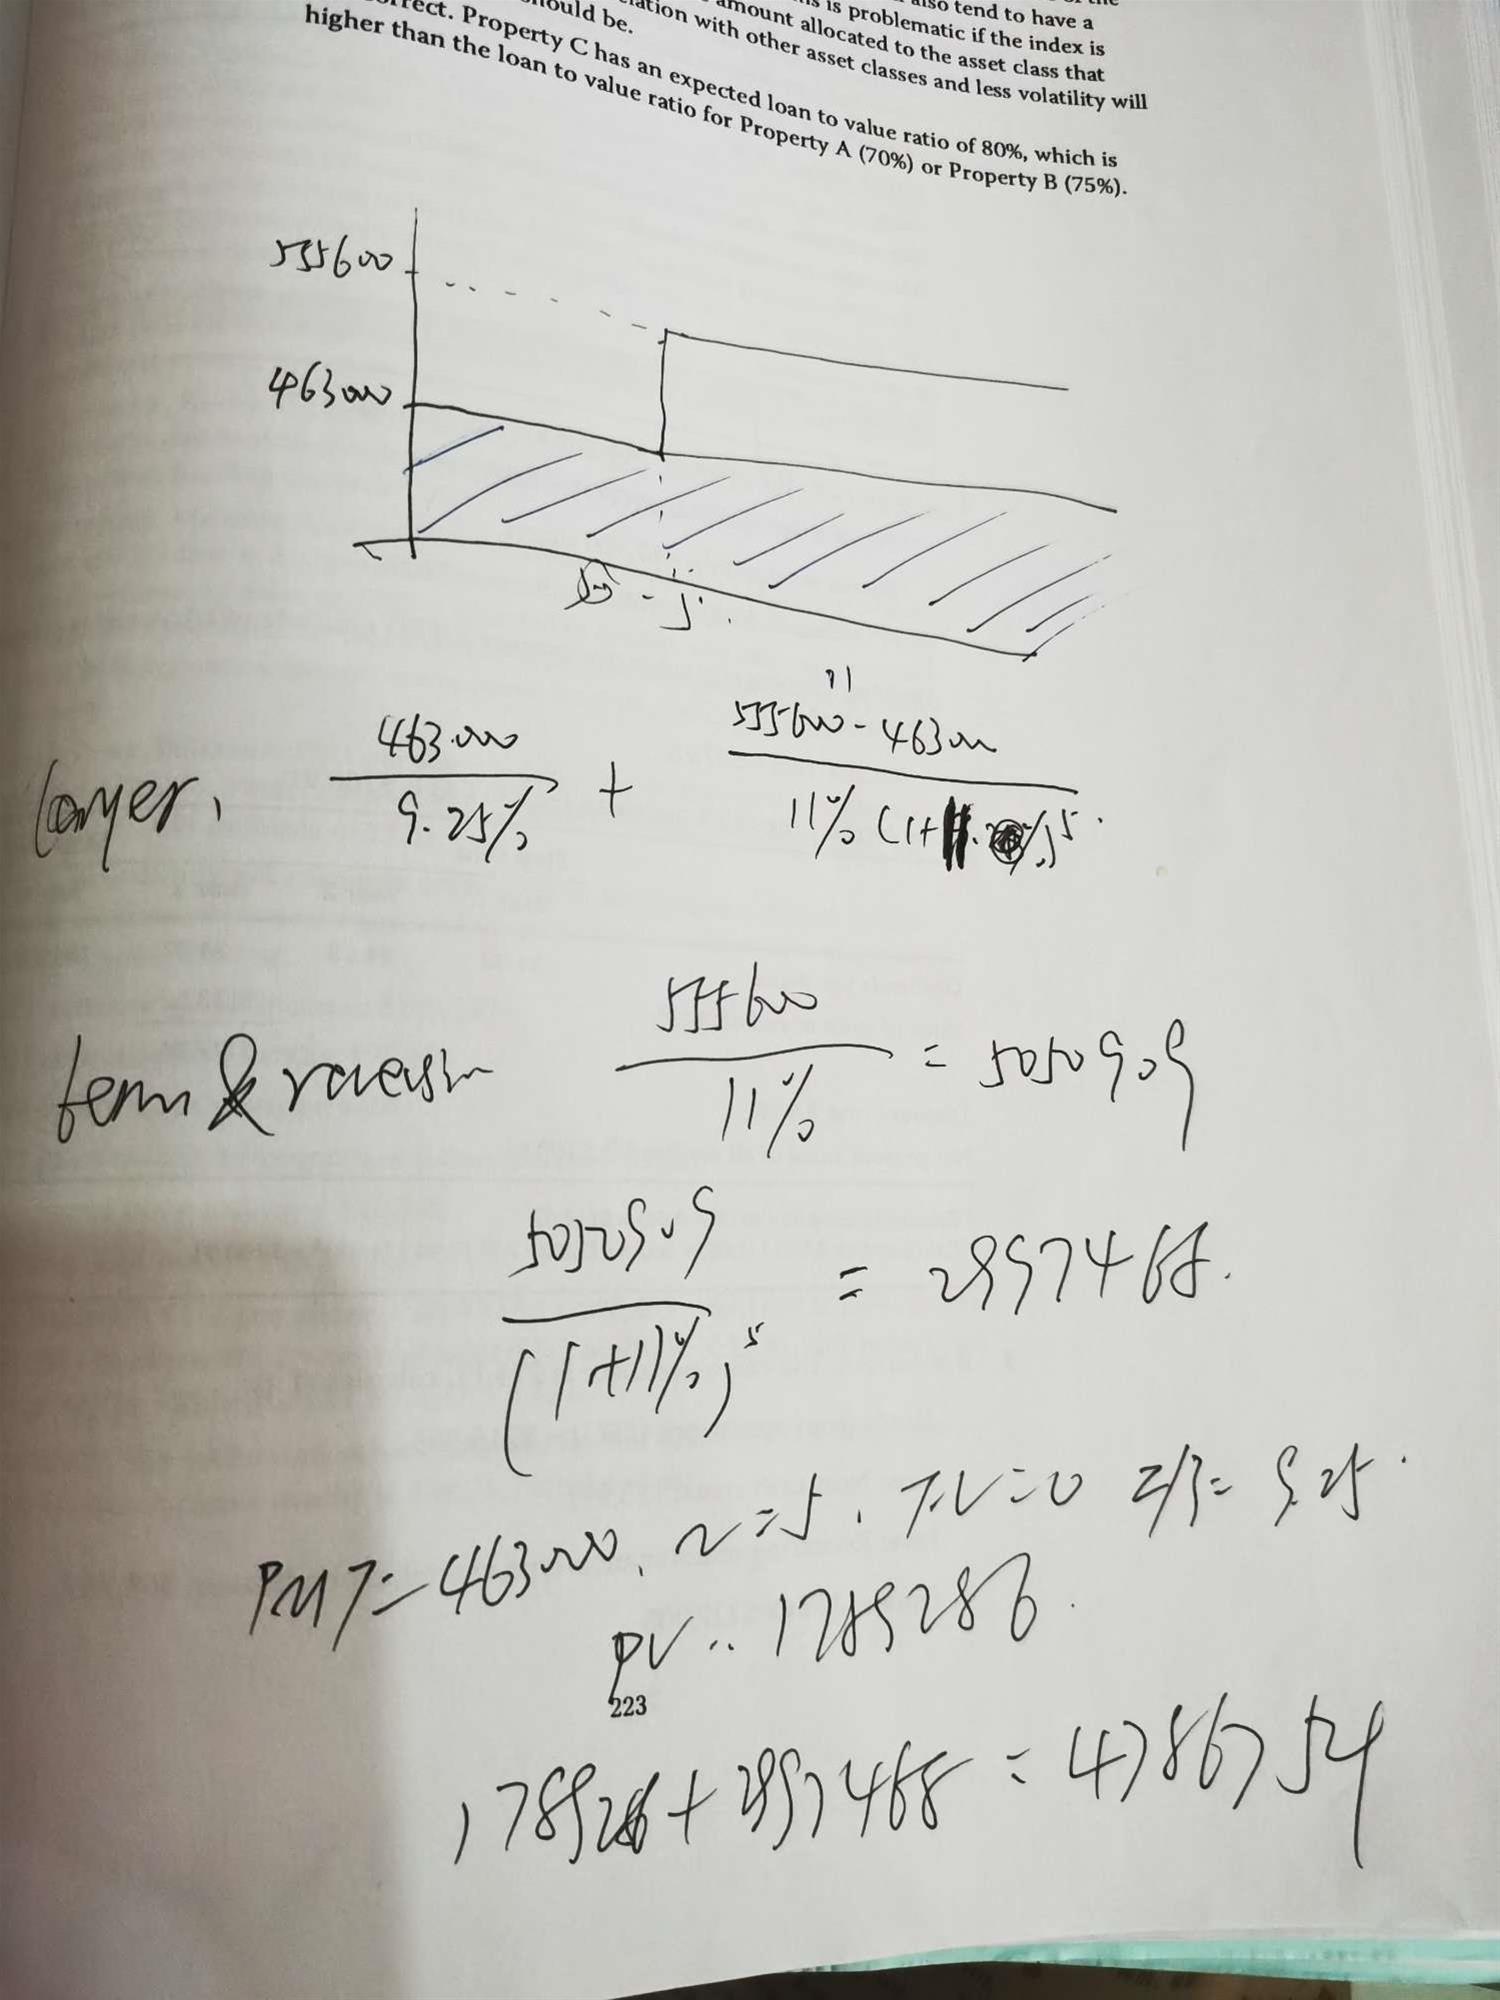 also tend to have a
is problematic if the index is
amount allocated to the asset class that
hould be.
lation with other asset classes and less volatility will
rrect. Property C has an expected loan to value ratio of 80%, which is
higher than the loan to value ratio for Property A (70%) or Property B (75%).
555600
463000
5
11
layer, 463.000 / 9.25% + 555600 - 463000 / 11% (1+ %)^5
term & reversion 555600 / 11% = 5050909
5050909 / (1+11%)^5 = 2997468.
PMT = 463000, N=5, FV=0 I/Y= 9.25
PV .. 1789286
223
1789286 + 2997468 = 4786754